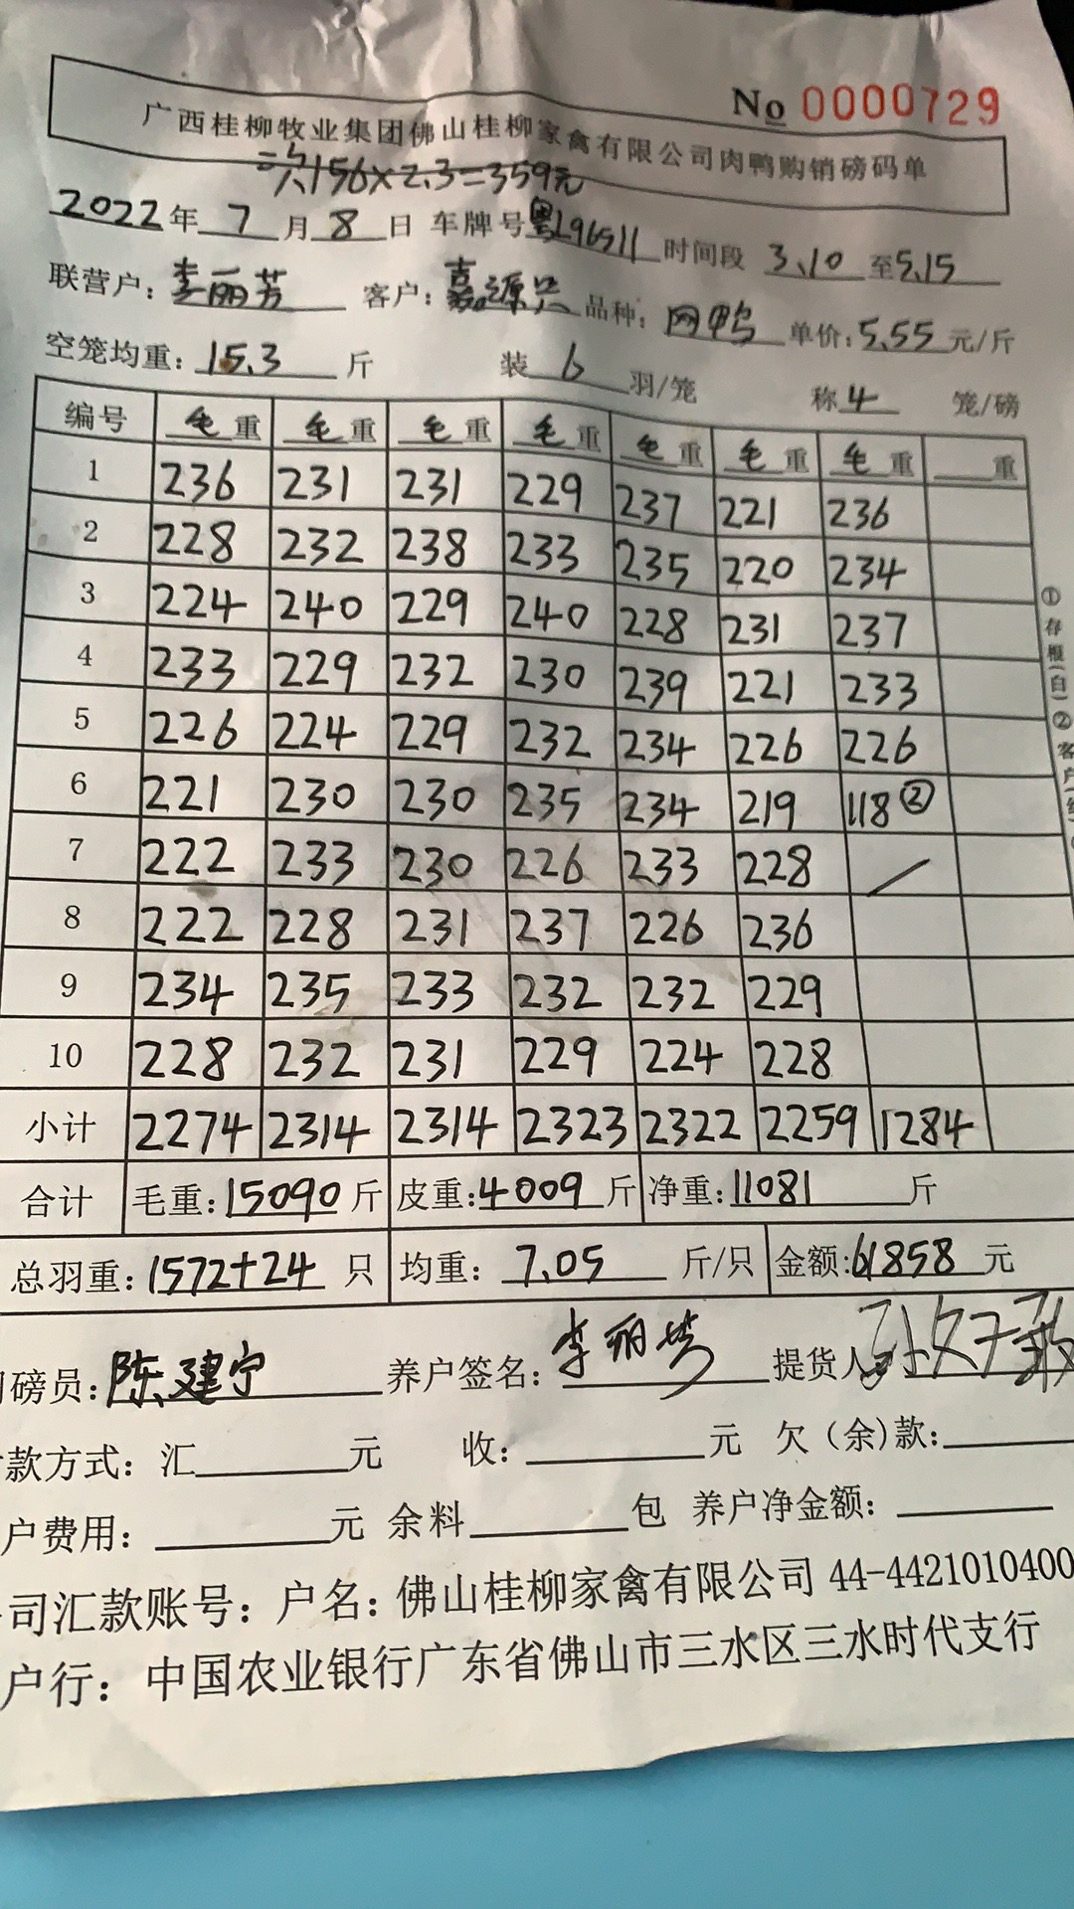 No 0000729
广西桂柳牧业集团佛山桂柳家禽有限公司肉鸭购销磅码单
156×2.3=359元
2022年 7 月 8 日 车牌号 粤L96511 时间段 3.10 至 5.15
联营户: 李丽芳 客户: 嘉源 品种: 网鸭 单价: 5.55 元/斤
空笼均重: 15.3 斤 装 6 羽/笼 称 4 笼/磅
编号 毛重 毛重 毛重 毛重 毛重 毛重 毛重 重
1 236 231 231 229 237 221 236
2 228 232 238 233 235 220 234
3 224 240 229 240 228 231 237
4 233 229 232 230 239 221 233
5 226 224 229 232 234 226 226
6 221 230 230 235 234 219 118②
7 222 233 230 226 233 228 /
8 222 228 231 237 226 236
9 234 235 233 232 232 229
10 228 232 231 229 224 228
小计 2274 2314 2314 2323 2322 2259 1284
合计 毛重: 15090 斤 皮重: 4009 斤 净重: 11081 斤
总羽重: 1572+24 只 均重: 7.05 斤/只 金额: 61858 元
磅员: 陈建宁 养户签名: 李丽芳 提货人
款方式: 汇 元 收: 元 欠(余)款:
户费用: 元 余料 包 养户净金额:
司汇款账号: 户名: 佛山桂柳家禽有限公司 44-4421010400
户行: 中国农业银行广东省佛山市三水区三水时代支行
①存根(白)②客户(红)